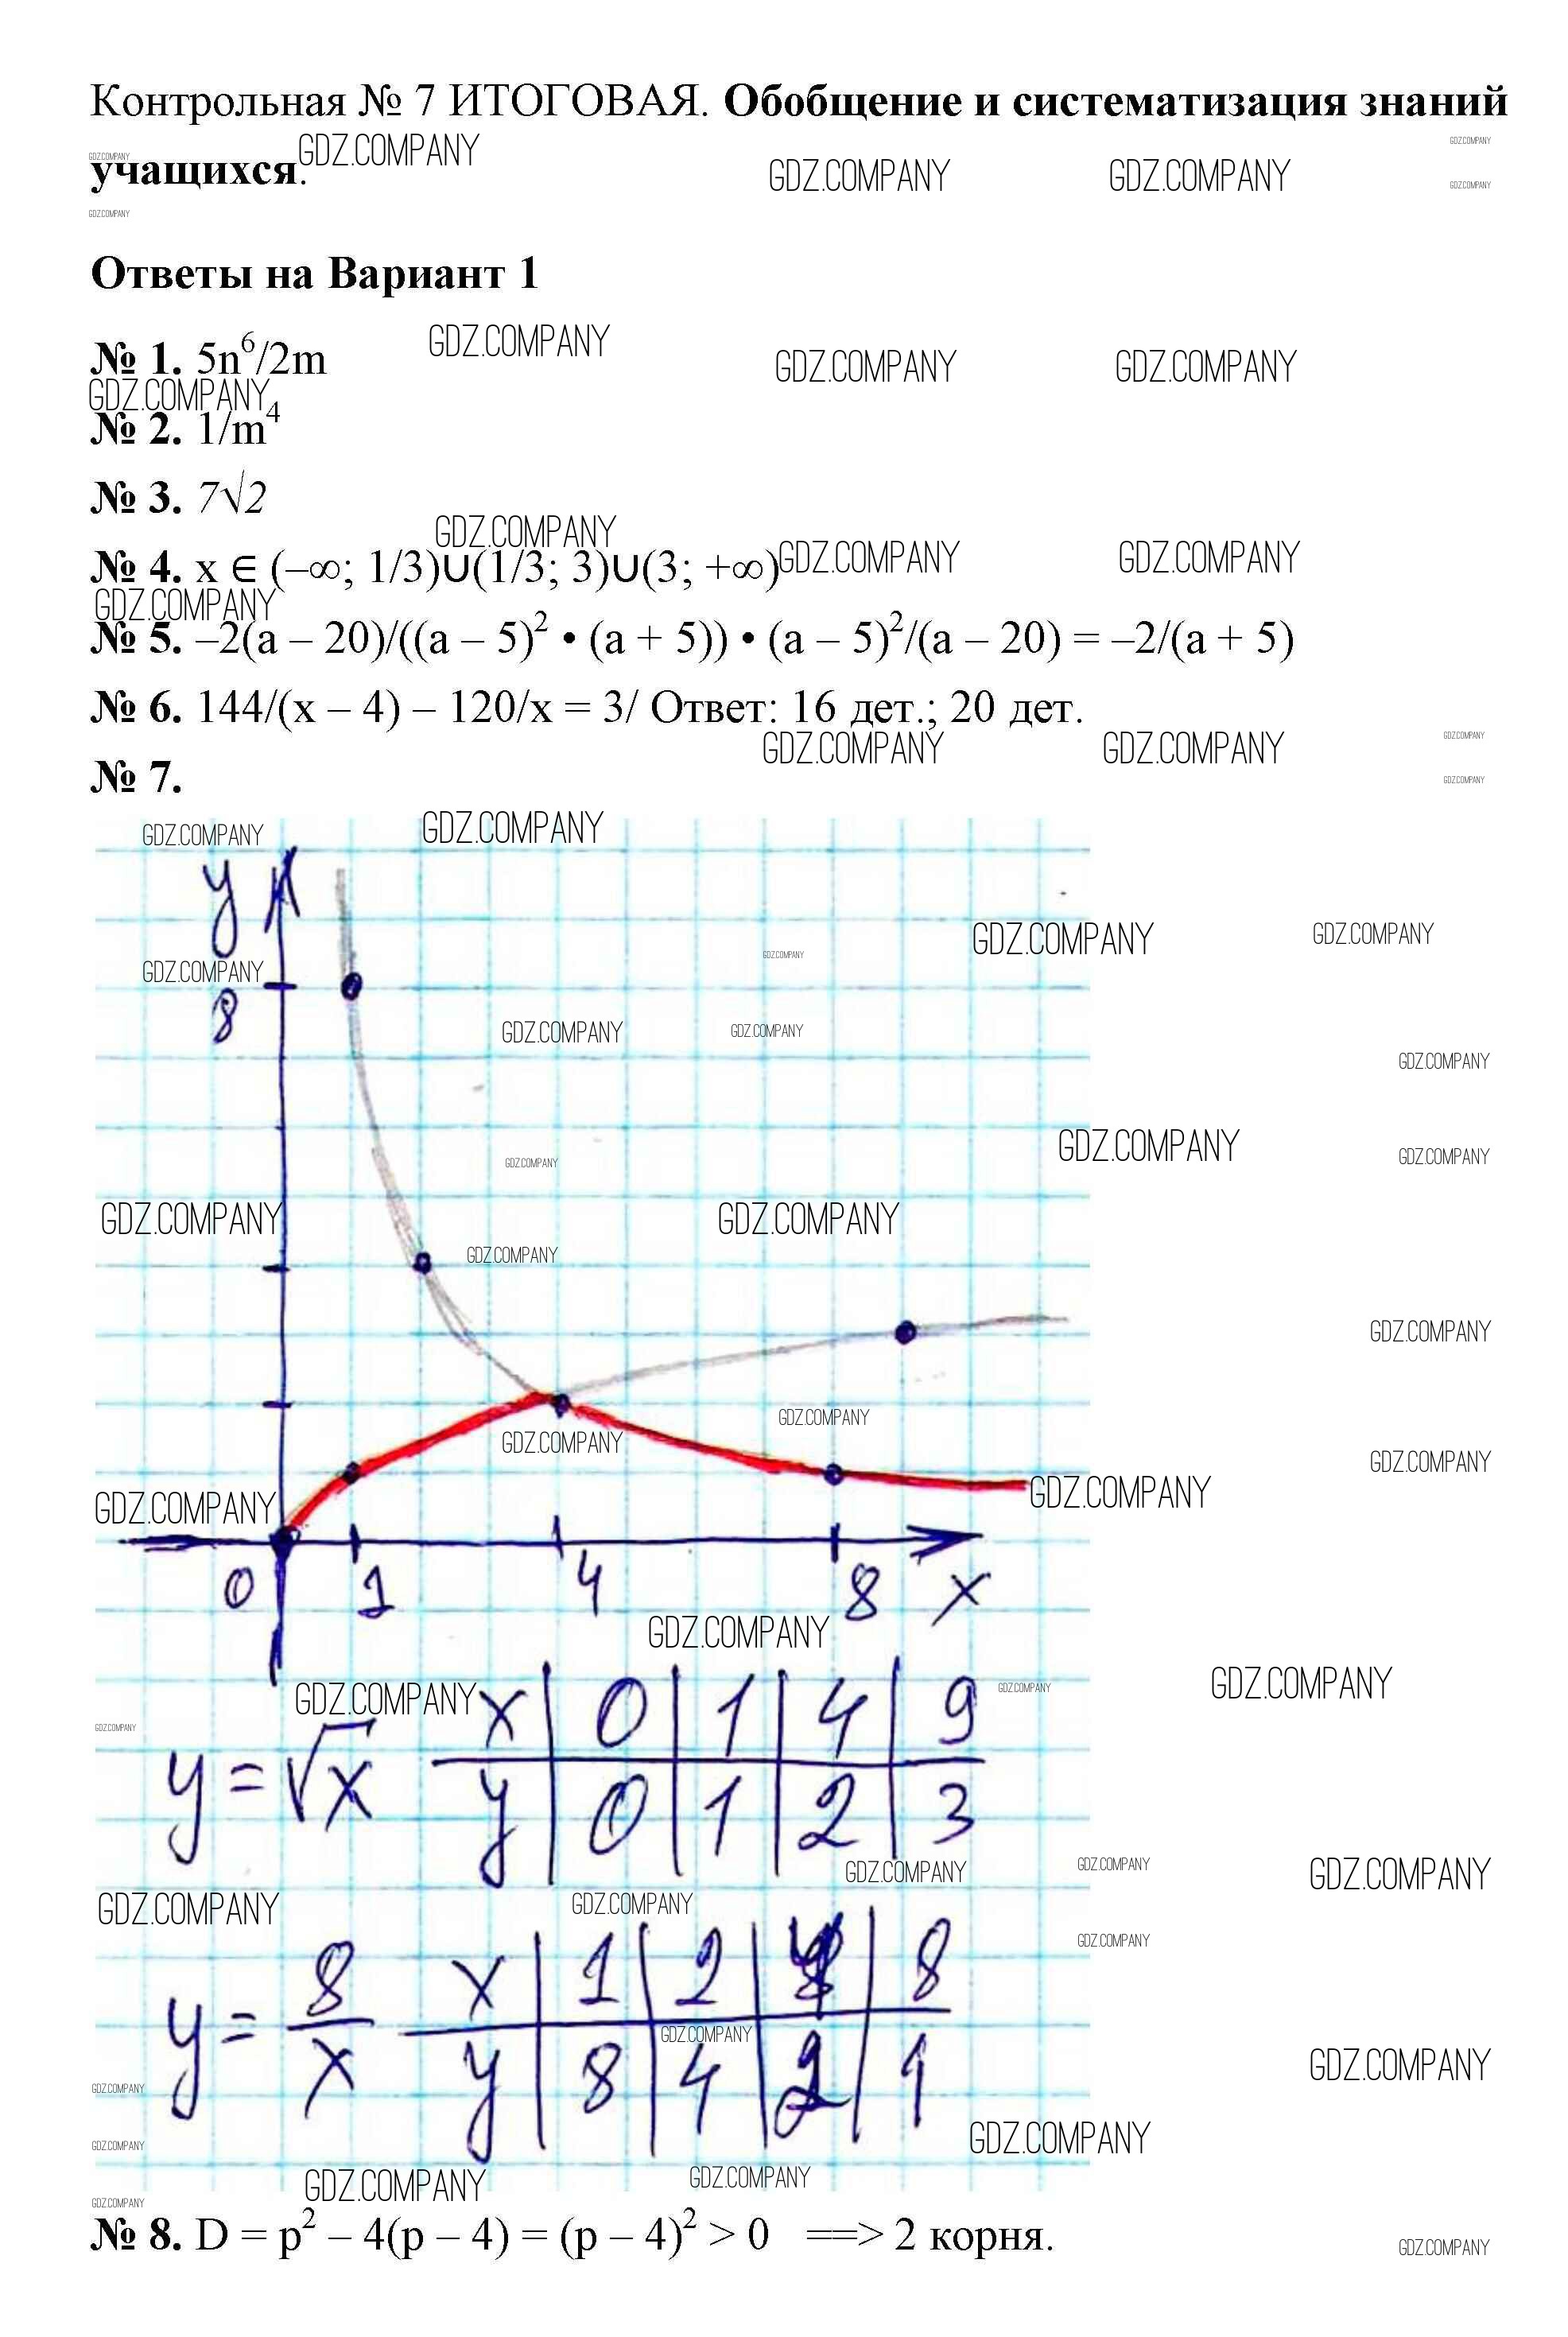 Контрольная № 7 ИТОГОВАЯ. Обобщение и систематизация знаний
учащихся.
Ответы на Вариант 1
№ 1. 5n⁶/2m
№ 2. 1/m⁴
№ 3. 7√2
№ 4. x ∈ (–∞; 1/3)∪(1/3; 3)∪(3; +∞)
№ 5. –2(a – 20)/((a – 5)² • (a + 5)) • (a – 5)²/(a – 20) = –2/(a + 5)
№ 6. 144/(x – 4) – 120/x = 3/ Ответ: 16 дет.; 20 дет.
№ 7.
y
8
0 1 4 8 x
y = √x x 0 1 4 9
y 0 1 2 3
y = 8/x x 1 2 4 8
y 8 4 2 1
№ 8. D = p² – 4(p – 4) = (p – 4)² > 0 ==> 2 корня.
GDZ.COMPANY